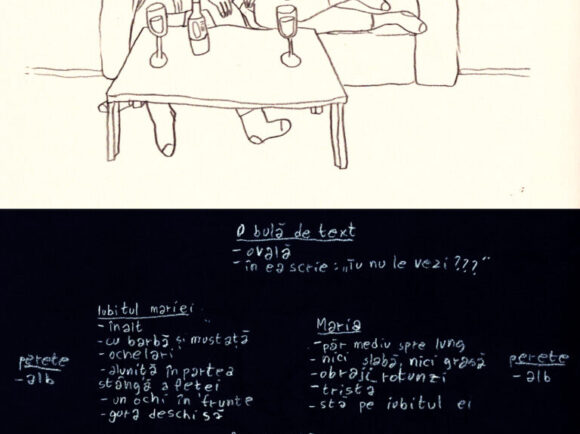 O bulă de text
- ovală
- în ea scrie: „Tu nu le vezi???"
Iubitul mariei
- înalt
- cu barbă și mustață
- ochelari
- aluniță în partea
stângă a feței
- un ochi în frunte
- gura deschisă
Maria
- păr mediu spre lung
- nici slabă, nici grasă
- obraji rotunzi
- tristă
- stă pe iubitul ei
perete
- alb
perete
- alb